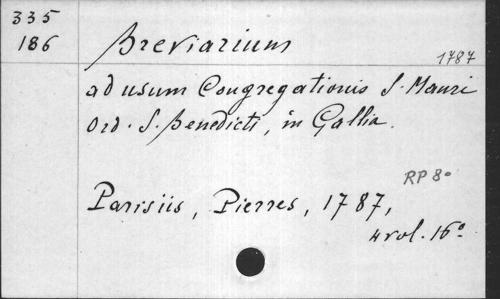 335
186
Breviarium
1787
ad usum Congregationis S. Mauri
Ord. S. Benedicti, in Gallia.
RP 8º
Parisiis, Pierres, 1787,
4 vol. 16º